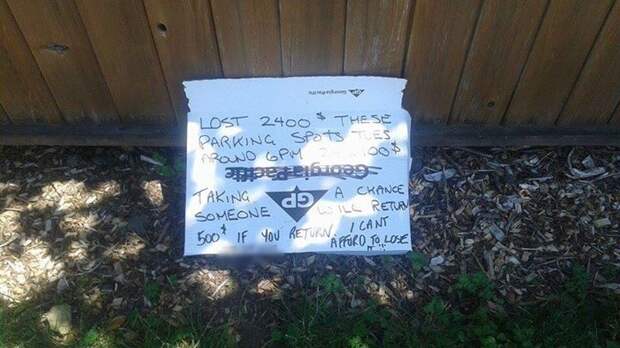 Georgia-Pacific
LOST 2400$ THESE
PARKING SPOTS TUES
AROUND 6PM 00$
Georgia-Pacific
TAKING GP A CHANCE
SOMEONE WILL RETURN
500$ IF YOU RETURN. I CANT
AFFORD TO LOSE